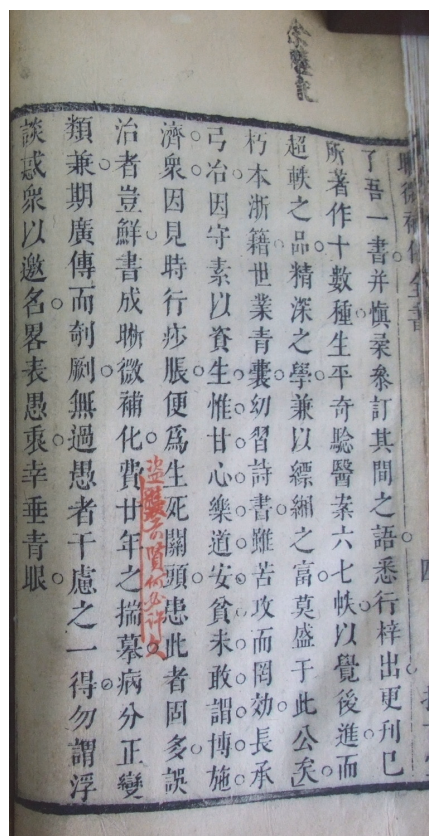 了吾一書并慎柔叅訂其間之語悉行梓出更刋已
所著作十數種生平奇騐醫案六七帙以覺後進而
超軼之品精深之學兼以縹緗之富莫盛于此公矣
朽木浙籍世業青囊幼習詩書雖苦攻而罔効長承
弓冶因守素以資生惟甘心樂道安貧未敢謂博施
濟衆因見時行痧脹便為生死關頭患此者固多誤
治者豈鮮書成晰微補化費廿年之揣摹病分正變
類兼期廣傳而剞劂無過愚者千慮之一得勿謂浮
談惑衆以邀名畧表愚衷幸垂青眼